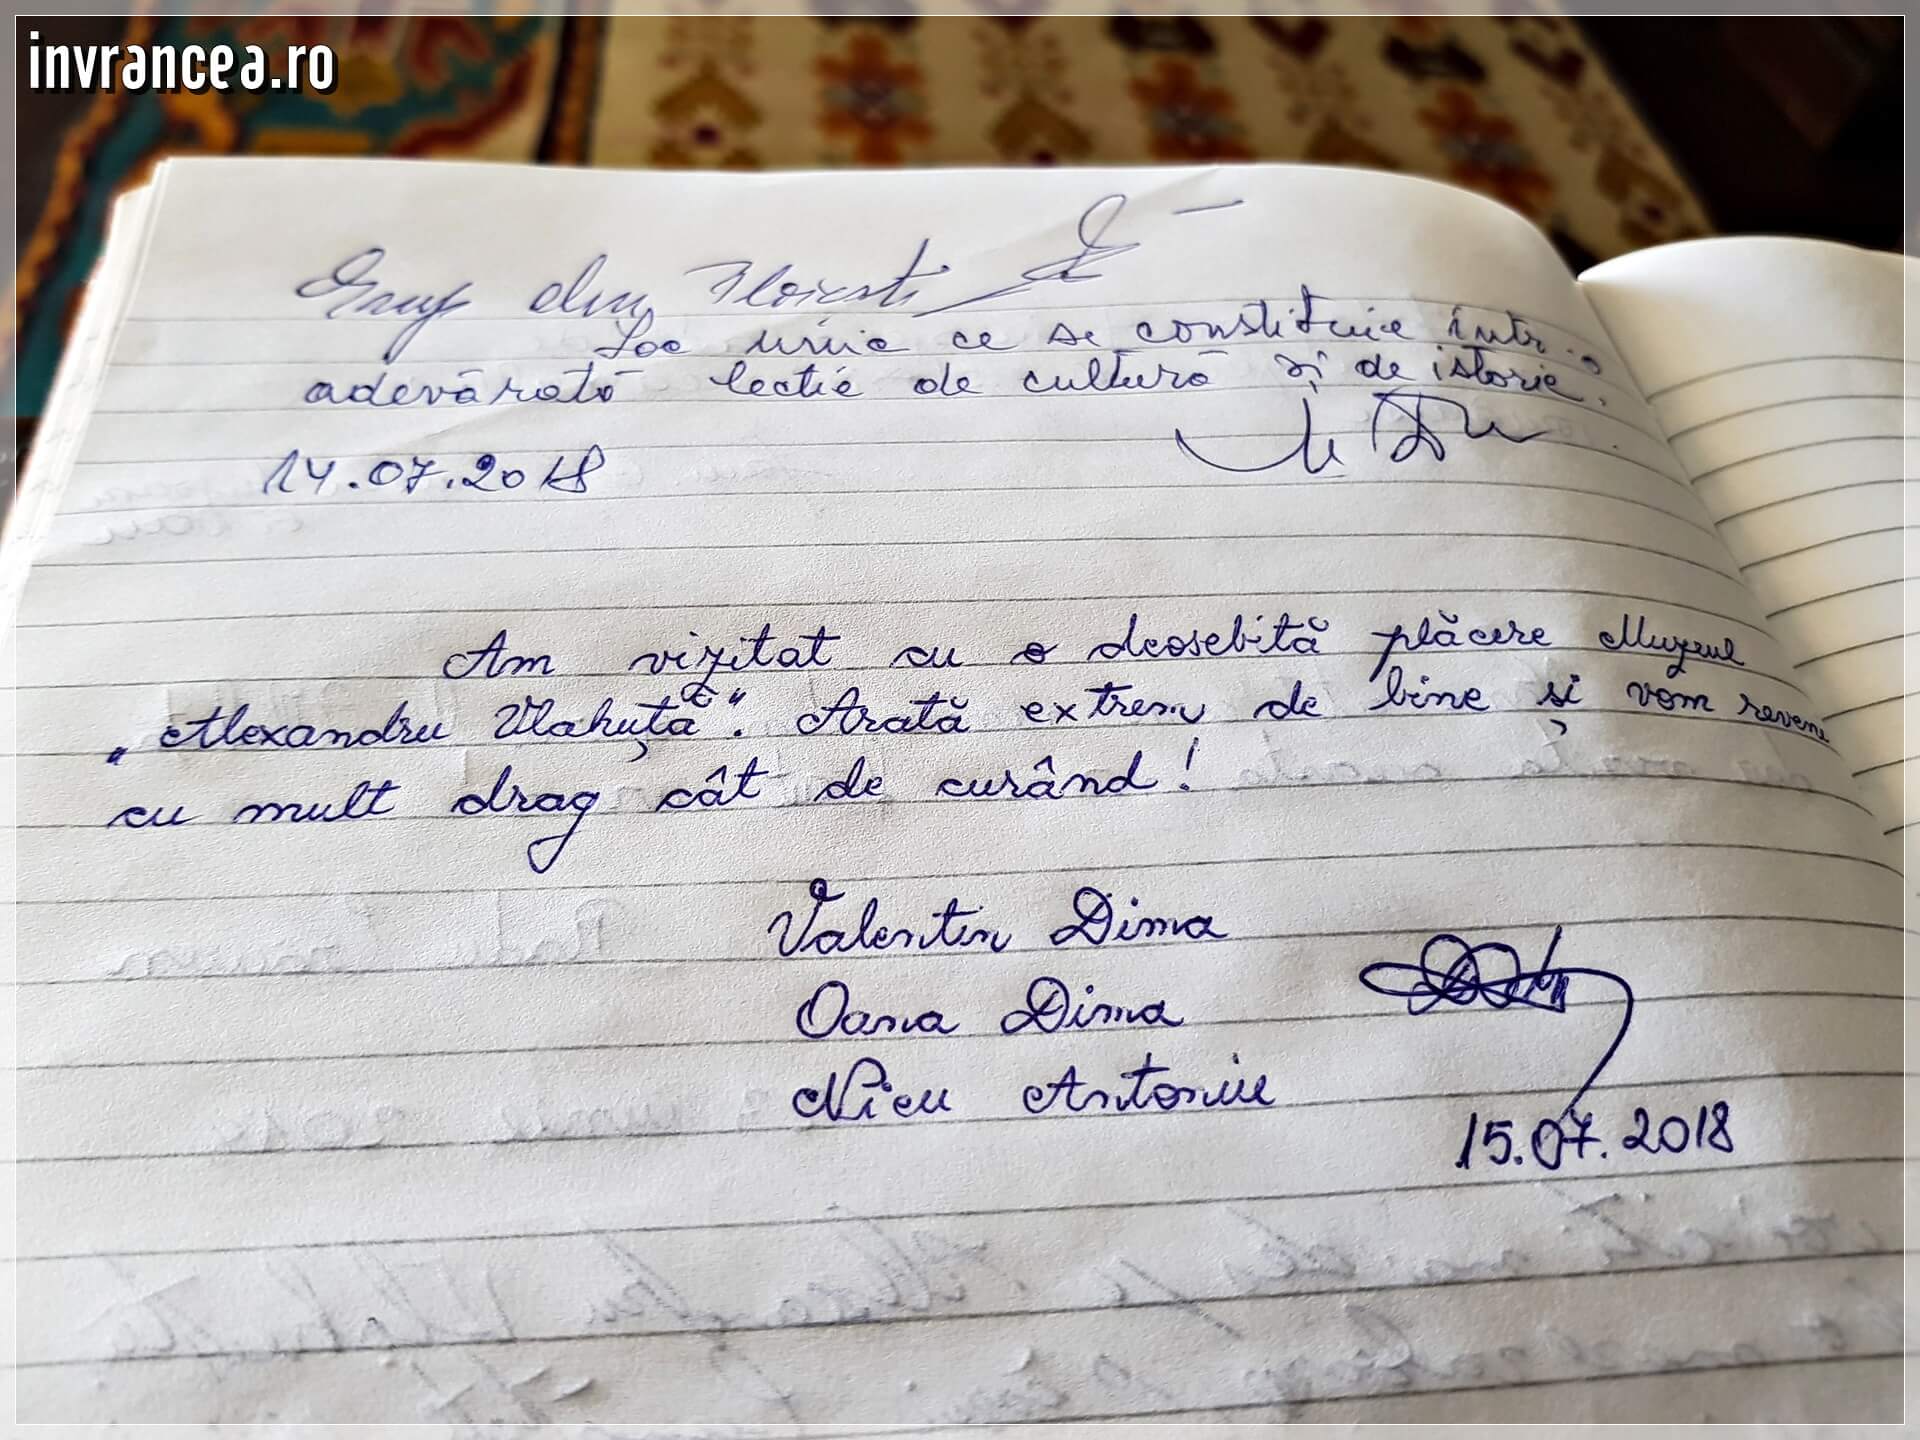 invrancea.ro
Grup din Ploiești
Loc unic ce se constituie într-o
adevărată lecție de cultură și de istorie.
14.07.2018
Am vizitat cu o deosebită plăcere Muzeul
„Alexandru Vlahuță". Arată extrem de bine și vom reveni
cu mult drag cât de curând!
Valentin Dima
Oana Dima
Nicu Antoniu
15.07.2018